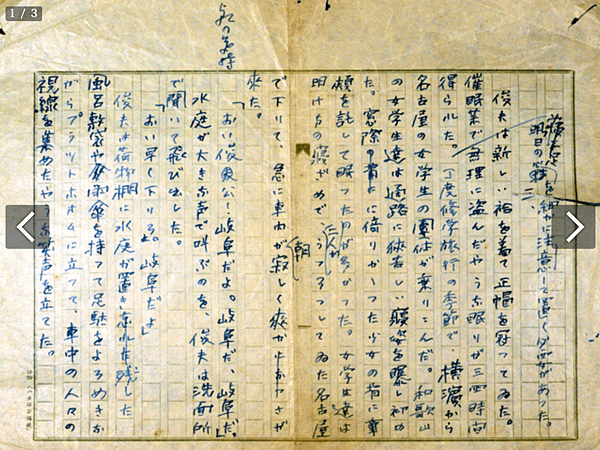 1 / 3
を細かに注意して置く必要があつた。
明日の
二、
俊夫は新しい袷を着て正帽を冠つてゐた。
催眠薬で無理に盗んだやうな眠りが三四時間
得られた。丁度修学旅行の季節で、横濱から
名古屋の女学生の團体が乗りこんだ。和歌山
の女学生達は通路に狭苦しい寝姿を曝し初め
た。窓際の者に倚りかゝつた少女の背に
頬を託して眠つた が多かつた。女学生達は
明け方の寝ざめで、うつうつしてゐた名古屋
朝
で下りて、急に車内が寂しく爽か さが
来た。
「おい俊公!岐阜だよ。岐阜だ、岐阜だ。」
水庭が大きな声で叫ぶのを、俊夫は洗面所
で聞いて飛び出した。
「おい早く下りろ。岐阜だよ」
俊夫は荷物棚に水庭が置き忘れた残した
風呂敷 や 雨傘を持つて足駄をよろめきな
がらプラットホオムに立つて、車中の人々の
視線を集めたやうな笑声を立てた。